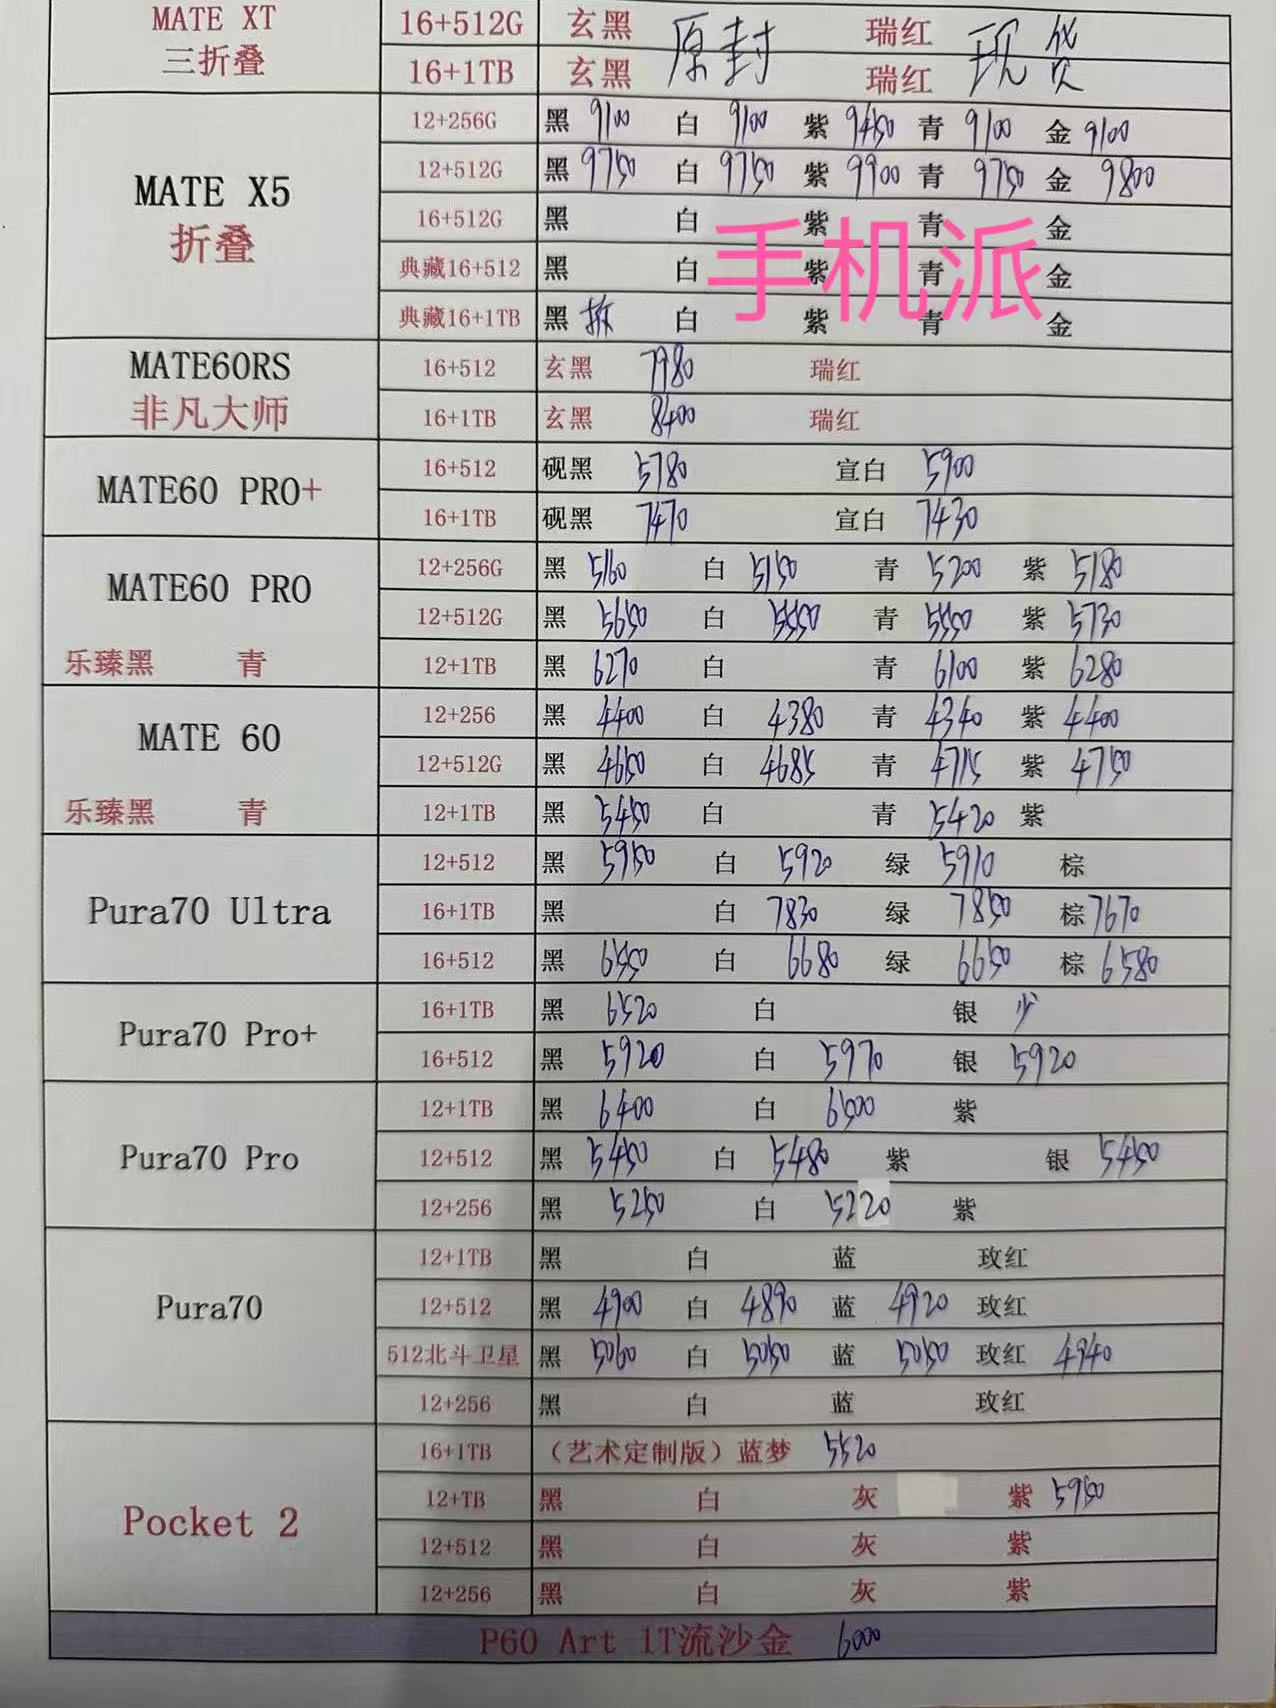 MATE XT 16+512G 玄黑 原封 瑞红 现货
三折叠 16+1TB 玄黑 瑞红
12+256G 黑 9100 白 9100 紫 9450 青 9100 金 9100
MATE X5 12+512G 黑 9750 白 9750 紫 9900 青 9750 金 9800
折叠 16+512G 黑 白 紫 青 金
手机派
典藏16+512 黑 白 紫 青 金
典藏16+1TB 黑 拆 白 紫 青 金
MATE60RS 16+512 玄黑 7980 瑞红
非凡大师 16+1TB 玄黑 8400 瑞红
MATE60 PRO+ 16+512 砚黑 5780 宣白 5900
16+1TB 砚黑 7470 宣白 7430
MATE60 PRO 12+256G 黑 5160 白 5150 青 5200 紫 5180
12+512G 黑 5650 白 5550 青 5550 紫 5730
乐臻黑 青 12+1TB 黑 6270 白 青 6100 紫 6280
MATE 60 12+256 黑 4400 白 4380 青 4340 紫 4400
12+512G 黑 4650 白 4685 青 4715 紫 4750
乐臻黑 青 12+1TB 黑 5450 白 青 5420 紫
12+512 黑 5950 白 5920 绿 5910 棕
Pura70 Ultra 16+1TB 黑 白 7830 绿 7850 棕 7670
16+512 黑 6550 白 6680 绿 6650 棕 6580
Pura70 Pro+ 16+1TB 黑 6520 白 银 少
16+512 黑 5920 白 5970 银 5920
12+1TB 黑 6400 白 6500 紫
Pura70 Pro 12+512 黑 5450 白 5480 紫 银 5450
12+256 黑 5250 白 5220 紫
12+1TB 黑 白 蓝 玫红
Pura70 12+512 黑 4900 白 4890 蓝 4920 玫红
512北斗卫星 黑 5060 白 5050 蓝 5050 玫红 4940
12+256 黑 白 蓝 玫红
16+1TB (艺术定制版) 蓝梦 5520
Pocket 2 12+TB 黑 白 灰 紫 5950
12+512 黑 白 灰 紫
12+256 黑 白 灰 紫
P60 Art 1T流沙金 6000